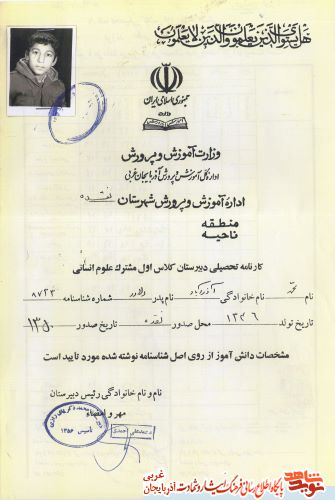 هل یستوی الذین یعلمون والذین لا یعلمون
جمهوری اسلامی ایران
وزارت آموزش و پرورش
اداره کل آموزش و پرورش آذربایجان غربی
اداره آموزش و پرورش شهرستان نقده
منطقه
ناحیه
کارنامه تحصیلی دبیرستان کلاس اول مشترک علوم انسانی
نام خانوادگی نام پدر شماره شناسنامه ۸۷۲۳
تاریخ تولد ۱۳۴۶ محل صدور نقده تاریخ صدور ۱۳۵۰
مشخصات دانش آموز از روی اصل شناسنامه نوشته شده مورد تایید است
نام و نام خانوادگی رئیس دبیرستان
مهر و امضاء
تاسیس ۱۳۵۶
نوید شاهد
پایگاه اطلاع رسانی فرهنگ ایثار و شهادت آذربایجان غربی